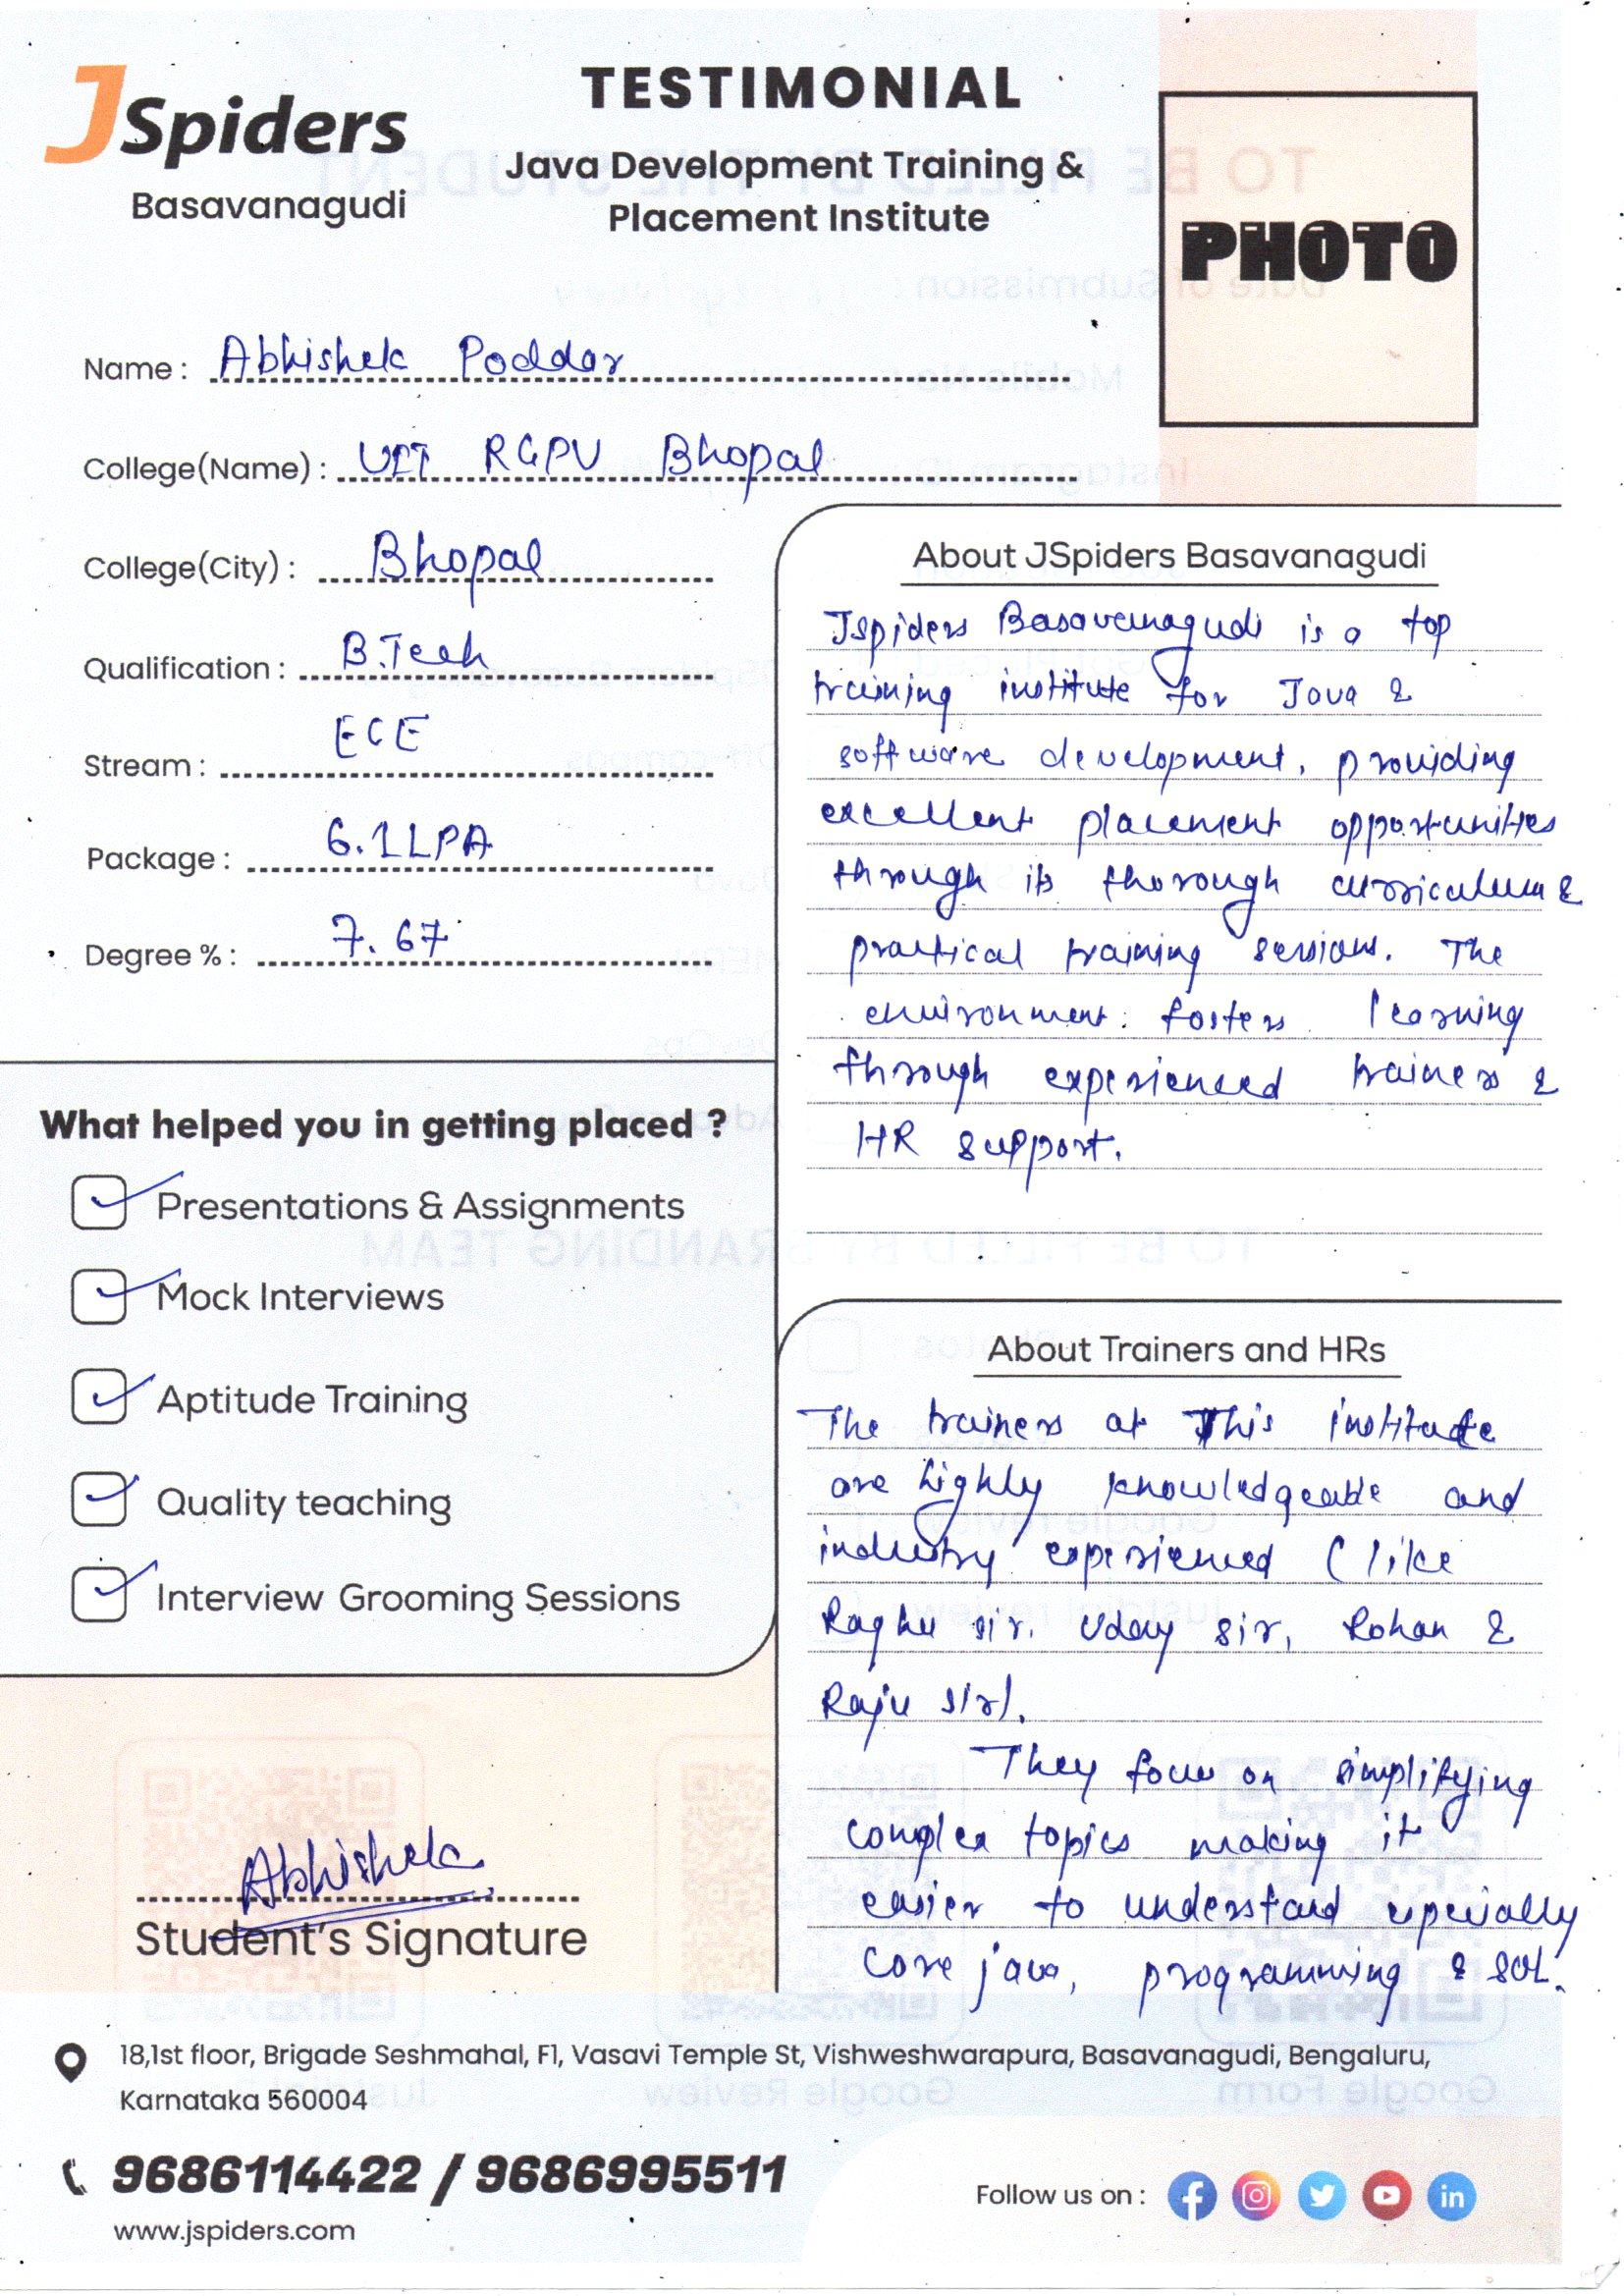 JSpiders
Basavanagudi
TESTIMONIAL
Java Development Training &
Placement Institute
PHOTO
Name : Abhishek Poddar
College(Name) : UIT RGPV Bhopal
College(City) : Bhopal
Qualification : B.Tech
Stream : ECE
Package : 6.1LPA
Degree % : 7.67
What helped you in getting placed ?
Presentations & Assignments
Mock Interviews
Aptitude Training
Quality teaching
Interview Grooming Sessions
Abhishek
Student's Signature
About JSpiders Basavanagudi
Jspiders Basavanagudi is a top
training institute for Java &
software development, providing
excellent placement opportunities
through its thorough curriculum &
practical training sessions. The
environment fosters learning
through experienced trainers &
HR support.
About Trainers and HRs
The trainers at This institute
are highly knowledgeable and
industry experienced (like
Raghu sir, Uday sir, Rohan &
Raju sir).
They focus on simplifying
complex topics making it
easier to understand especially
core java, programming & SQL.
18,1st floor, Brigade Seshmahal, F1, Vasavi Temple St, Vishweshwarapura, Basavanagudi, Bengaluru,
Karnataka 560004
9686114422 / 9686995511
www.jspiders.com
Follow us on :